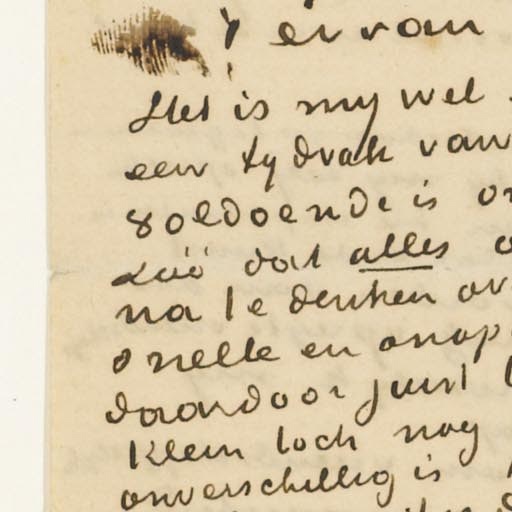 er van
Het is my wel
een tydvak van
voldoende is
zóó dat alles
na te denken ov
snelle en onop
daardoor juist
klein toch nog
onverschillig is